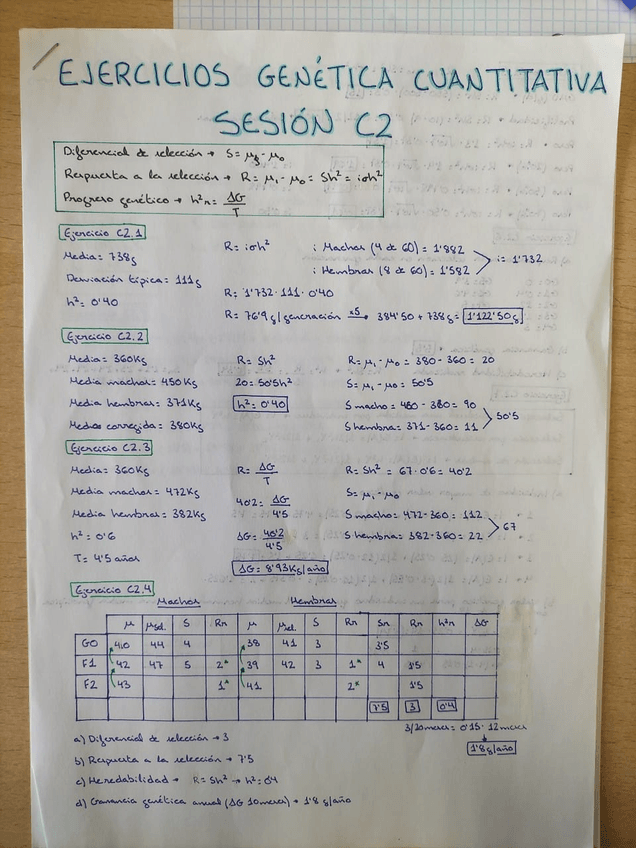 EJERCICIOS GENÉTICA CUANTITATIVA
SESIÓN C2
Diferencial de selección → S = μs - μ₀
Respuesta a la selección → R = μ₁ - μ₀ = Sh² = iσh²
Progreso genético → h²n = ΔG/T
Ejercicio C2.1
Media = 738g
Desviación típica = 111g
h² = 0'40
R = iσh²
R = 1'732 · 111 · 0'40
R = 76'9 g/generación x5 → 384'50 + 738g = 1'122'50 g
i Machos (4 de 60) = 1'882
i Hembras (8 de 60) = 1'582
i = 1'732
Ejercicio C2.2
Media = 360Kg
Media machos = 450Kg
Media hembras = 371Kg
Media corregida = 380Kg
R = Sh²
20 = 50'5h²
h² = 0'40
R = μ₁ - μ₀ = 380 - 360 = 20
S = μ₁ - μ₀ = 50'5
S macho = 450 - 380 = 90
S hembra = 371 - 360 = 11
50'5
Ejercicio C2.3
Media = 360Kg
Media machos = 472Kg
Media hembras = 382Kg
h² = 0'6
T = 4'5 años
R = ΔG/T
40'2 = ΔG/4'5
ΔG = 40'2/4'5
ΔG = 8'93Kg/año
R = Sh² = 67 · 0'6 = 40'2
S = μ₁ - μ₀
S macho = 472 - 360 = 112
S hembra = 382 - 360 = 22
67
Ejercicio C2.4
Machos Hembras
μ μsel. S Rn μ μsel. S Rn Sn Rn h²n ΔG
G0 40 44 4 38 41 3 3'5
F1 42 47 5 2* 39 42 3 1* 4 1'5
F2 43 1* 41 2* 1'5
7'5 3 0'4
3/20meses = 0'15 · 12meses
1'8 g/año
a) Diferencial de selección → 3
b) Respuesta a la selección → 7'5
c) Heredabilidad → R = Sh² → h² = 0'4
d) Ganancia genética anual (ΔG 10meses) → 1'8 g/año